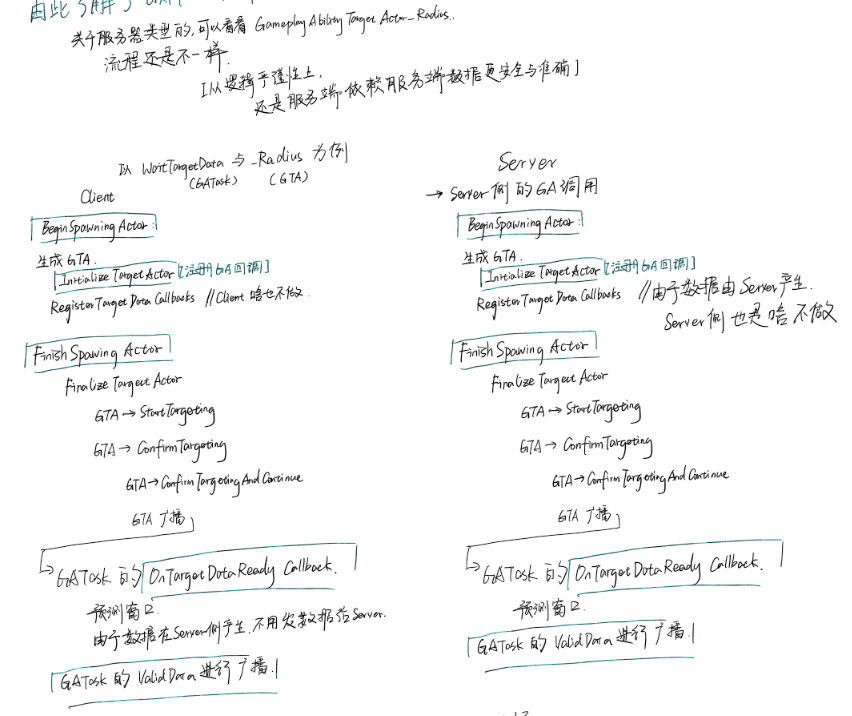 由此了解了
关于服务器类型的,可以看看 Gameplay Ability Target Actor_Radius..
流程还是不一样.
[从逻辑严谨性上,
还是服务端依赖服务端数据更安全与准确]
以 WaitTargetData 与 _Radius 为例
(GATask) (GTA)
Client
BeginSpawningActor:
生成 GTA.
Initialize Target Actor [注册GA回调]
RegisterTarget Data Callbacks //Client 啥也不做.
Finish Spawing Actor
Finalize Target Actor
GTA → StartTargeting
GTA → ConfirmTargeting
GTA → ConfirmTargetingAndContinue
GTA 广播
GATask 的 OnTargetDataReady Callback.
预测窗口.
由于数据在Server侧产生,不用发数据给Server.
GATask 的 ValidData 进行广播.
Server
→ Server 侧的GA调用
BeginSpawningActor:
生成 GTA.
Initialize Target Actor [注册GA回调]
RegisterTarget Data Callbacks //由于数据由Server产生.
Server 侧也是啥不做
Finish Spawing Actor
Finalize Target Actor
GTA → StartTargeting
GTA → ConfirmTargeting
GTA → ConfirmTargetingAndContinue
GTA 广播
GATask 的 OnTargetDataReady Callback.
预测窗口.
GATask 的 ValidData 进行广播.